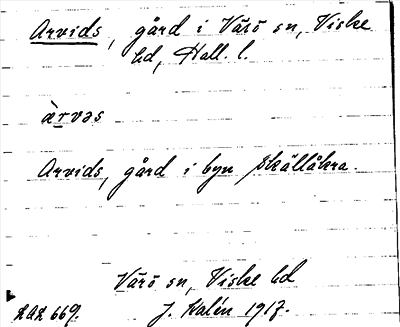 Arvids, gård i Värö sn, Viske
hd, Hall. l.
ærvəs
Arvids, gård i byn Skällåkra.
Värö sn, Viske hd
J. Kalén 1917.